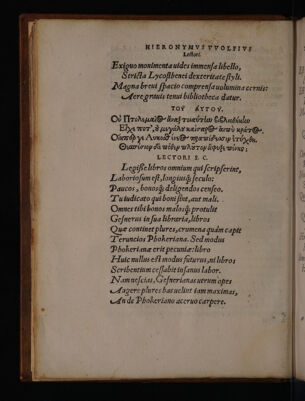 HIERONYMVS VVOLFIVS
Lectori.
Exiguo monimenta uides immensa libello,
Stricta Lycosthenei dexteritate styli.
Magna breui spacio comprensa uolumina cernis:
Aere grauis tenui bibliotheca datur.
ΤΟΥ ΑΥΤΟΥ.
Οὐ Πτολεμαῖος
LECTORI S. C.
Legisse libros omnium qui scripserint,
Laboriosum est, longiusq́ seculo:
Paucos, bonosq́ deligendos censeo.
Tu iudicato qui boni sint, aut mali.
Omneis tibi bonos malosq́ protulit
Gesnerus in sua libraria, libros
Quæ continet plures, crumena quàm capit
Teruncios Phokeriana. Sed modus
Phokerianæ erit pecuniæ: libro
Huic nullus est modus futurus, ni libros
Scribentium cessabit insanus labor.
Nam nescias, Gesnerianas utrum opes
Augere plures has uelint iam maximas,
An de Phokeriano aceruo carpere.